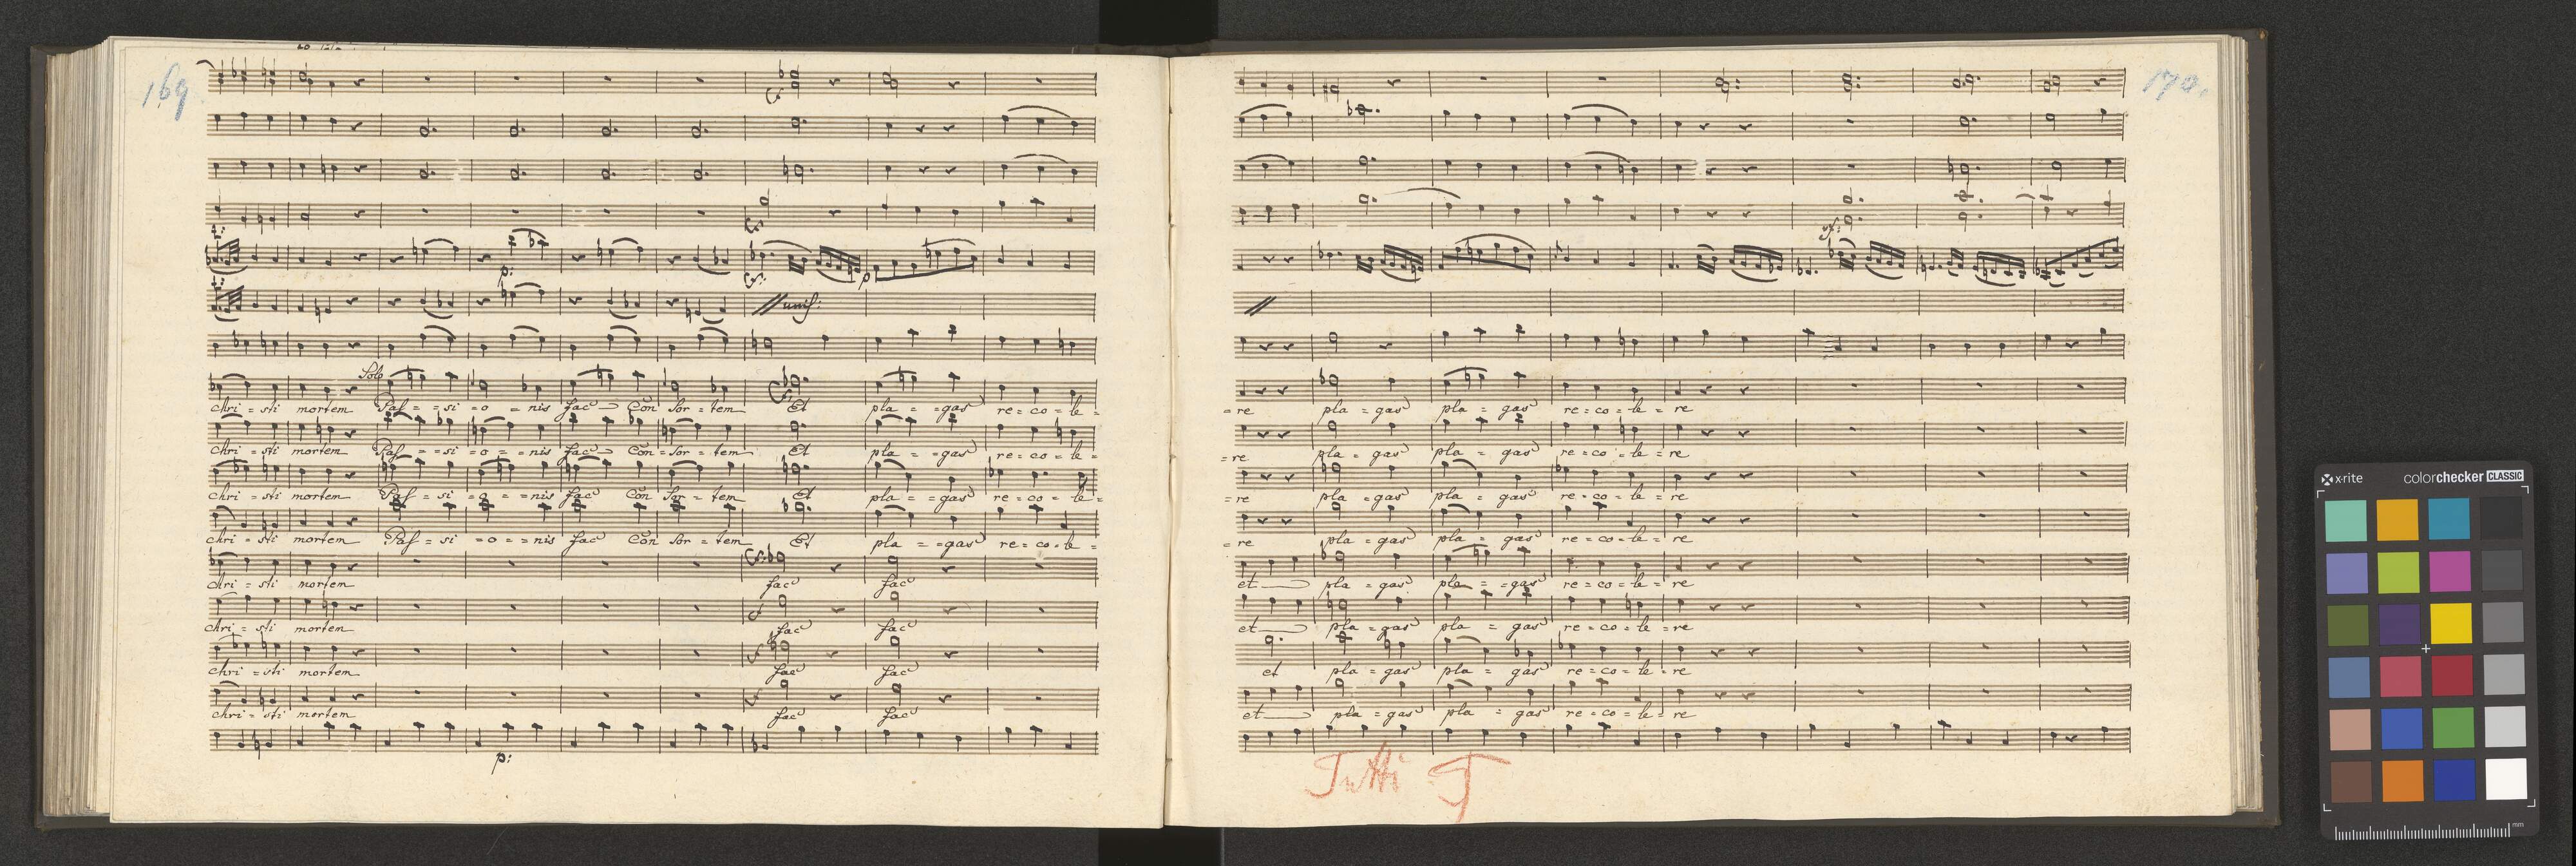 169
p:
p
unis:
Solo
chri = sti mortem Pas = = si = o = nis fac Con sor = tem Et pla = = gas re = co = le =
chri = sti mortem Pas = = si = o = = nis fac Con = sor = tem Et pla = = gas re = co = le =
chri = sti mortem Pas = si = o = = nis fac Con sor = tem Et pla = = gas re = co = le =
chri = sti mortem Pas = si = o = = nis fac Con sor = tem Et pla = = gas re = co = le =
chri = sti mortem fac fac
chri = sti mortem fac fac
chri = sti mortem fac fac
chri = sti mortem fac fac
p:
170.
sf:
= re pla = gas pla = gas re = co = le = re
= re pla = gas pla = gas re = co = le = re
= re pla = gas pla = gas re = co = le = re
= re pla = gas pla = gas re = co = le = re
et pla = gas pla = = gas re = co = le = re
et pla = gas pla = gas re = co = le = re
et pla = gas pla = gas re = co = le = re
et pla = gas pla = gas re = co = le = re
Tutti
x-rite colorchecker CLASSIC
mm